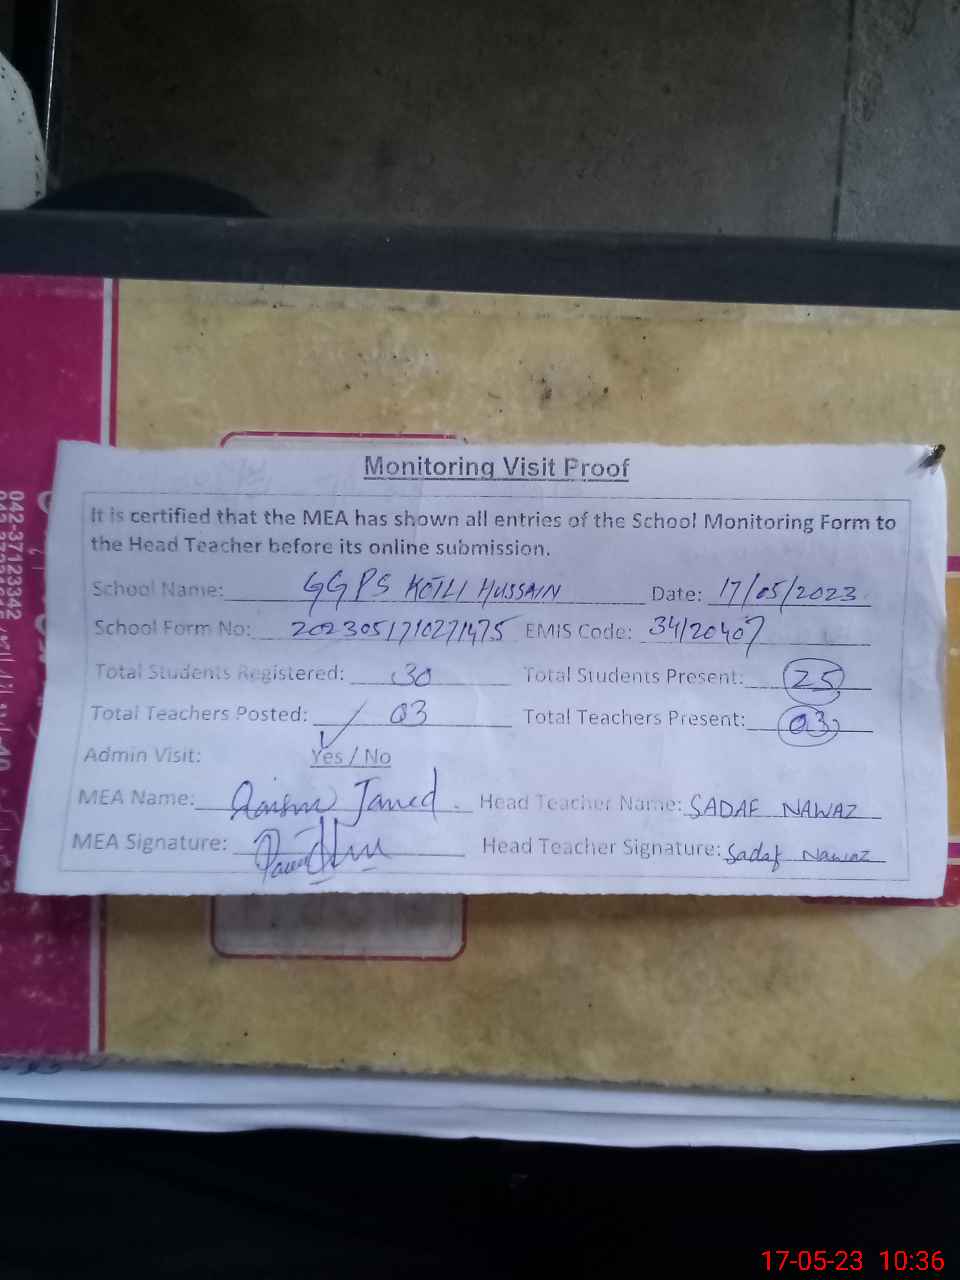 Monitoring Visit Proof
It is certified that the MEA has shown all entries of the School Monitoring Form to
the Head Teacher before its online submission.
School Name: GGPS KOTLI HUSSAIN Date: 17/05/2023
School Form No: 20230517102711475 EMIS Code: 34120407
Total Students Registered: 30 Total Students Present: 25
Total Teachers Posted: 03 Total Teachers Present: 03
Admin Visit: Yes / No
MEA Name: Head Teacher Name: SADAF NAWAZ
MEA Signature: Head Teacher Signature: Sadaf Nawaz
042-37123342
17-05-23 10:36